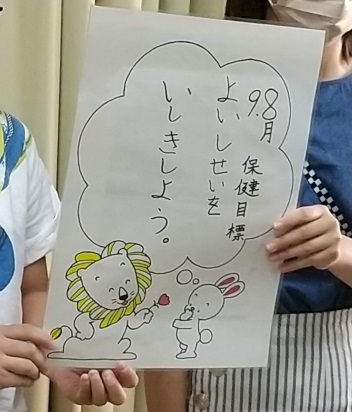 9.8月
保健目標
よいしせいを
いしきしよう。